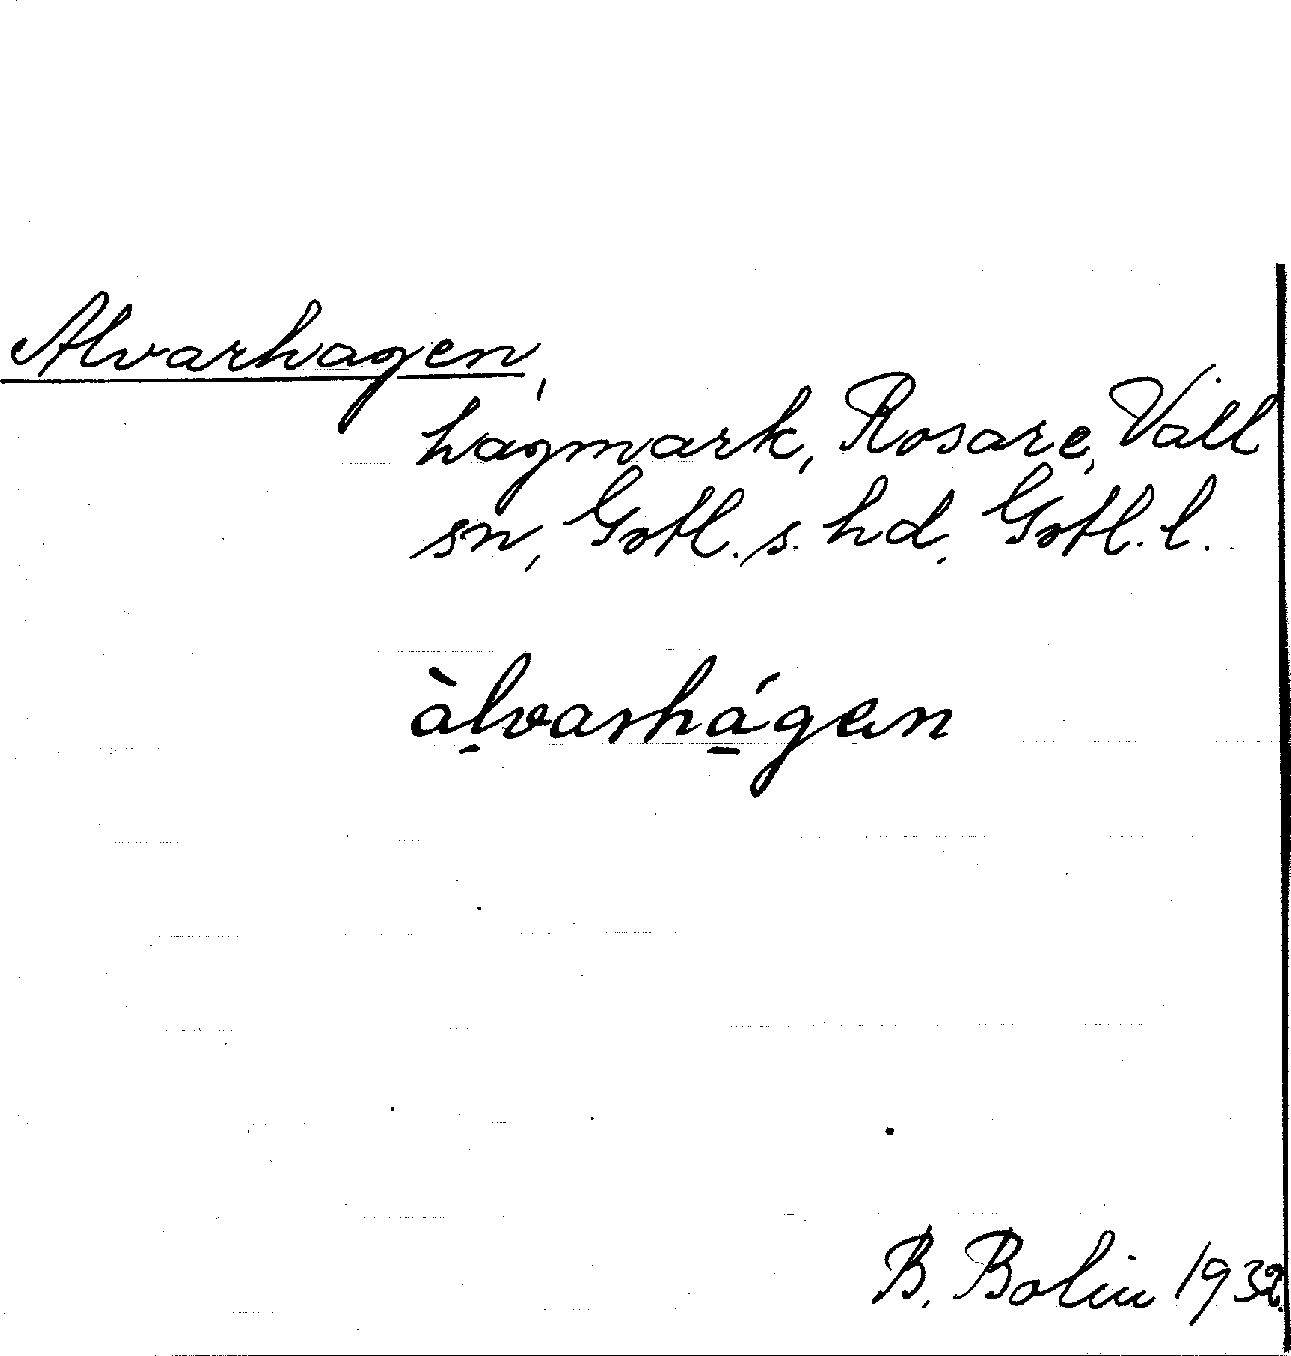 Alvarhagen,
hagmark, Rosare, Vall
sn, Gotl. s. hd, Gotl. l.
àl̠varhá̠gen
B. Bolin 1932.